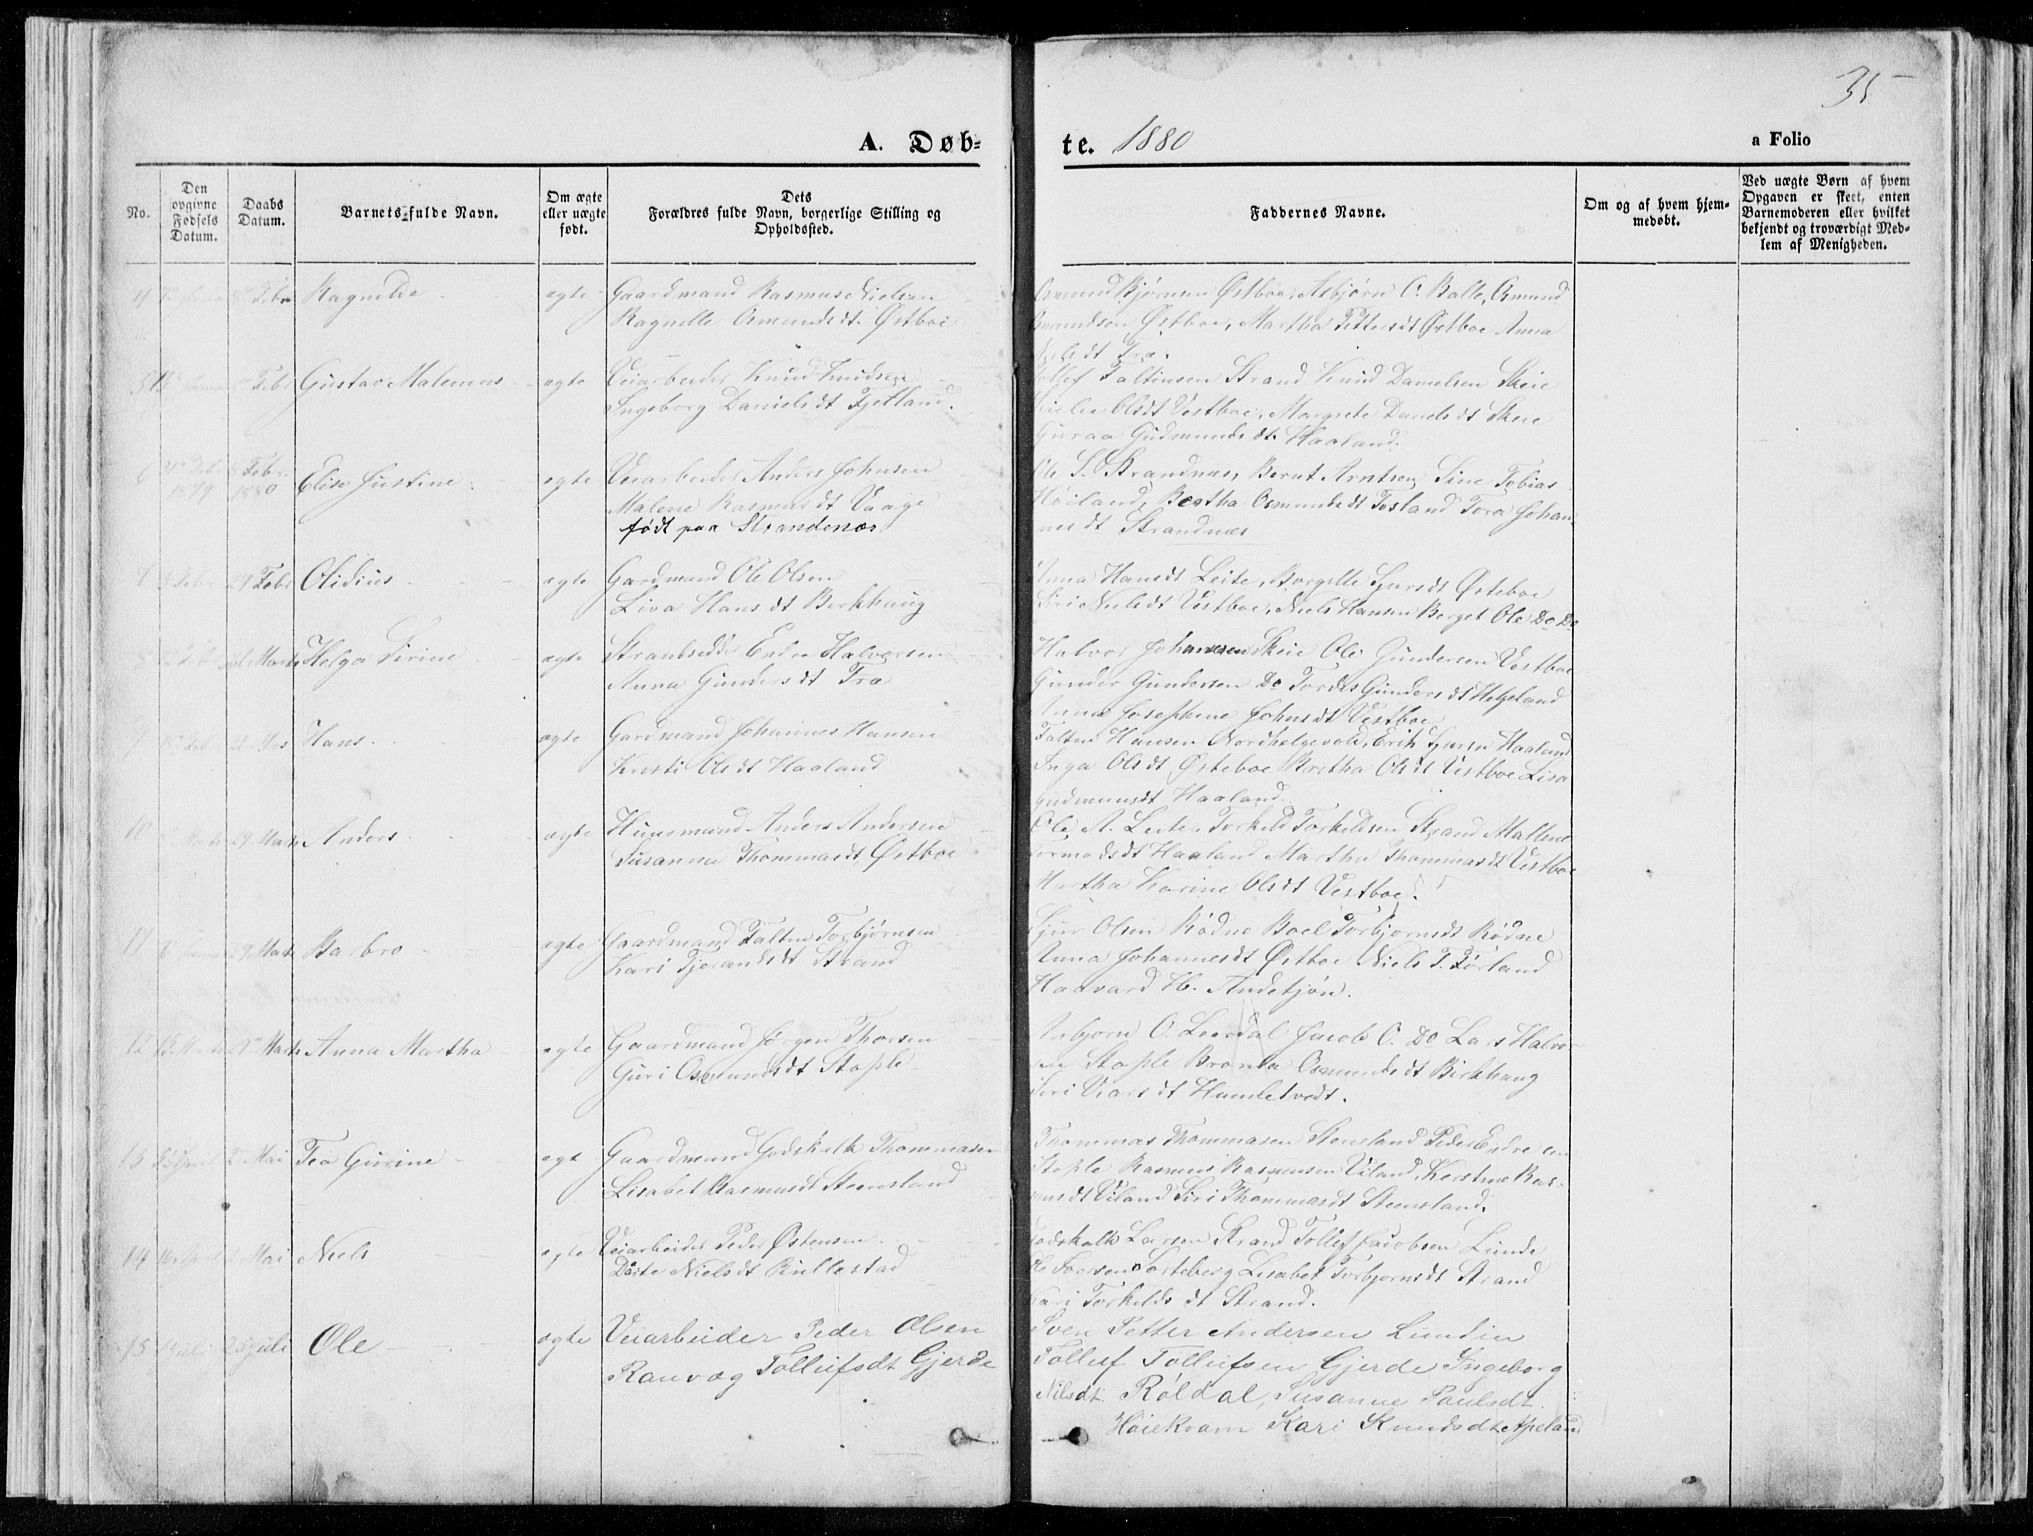 35
A. Døb-
te. 1880
a Folio
No.
Den
opgivne
Fødsels
Datum.
Daabs
Datum.
Barnets fulde Navn.
Om ægte
eller uægte
født.
Dets
Forældres fulde Navn, borgerlige Stilling og
Opholdssted.
Faddernes Navne.
Om og af hvem hjem-
medøbt.
Ved uægte Børn af hvem
Opgaven er skeet, enten
Barnemoderen eller hvilket
bekjendt og troværdigt Med-
lem af Menigheden.
4 Febr Ragnilde ægte Gaardmand Rasmus Nielsen
Ragnilde Osmundsdt. Østboe
Bjørnsen Østboe, Asbjørn O. Balle, Osmund
Østboe, Martha Pettersdt Østboe Anna
dt Træ.
5 Febr Gustav Malenius ægte Veiarbeider Knud Knudsen
Ingeborg Danielsdt Fjetland.
Faltinsen Strand Knud Danielsen Skeie
Olsdt Vestboe, Margrete Danielsdt Skeie
Guraa Gudmundsdt. Haaland.
6 1879 Febr. 1880 Elise Justine ægte Veiarbeider Anders Johnsen
Malene Rasmusdt Vaage
født paa Strandenæs
Ole S. Strandnæs, Bernt Arntsen, Sine Tobias
Høiland, Bertha Osmundsdt Fosland Tora Johan-
nesdt Strandnæs
29 Febr Olidius ægte Gardmand Ole Olsen
Liva Hansdt Berkhaug
Anna Hansdt Leite, Borgille Sjursdt Østeboe
Siri Nielsdt Vestboe, Niels Hansen Berget Ole Do Do
Marts Helga Sirine ægte Strandsidder Endre Halvorsen
Anna Gundersdt Træ
Halvor Johannesen Skeie Ole Gundersen Vestboe
Gunder Gundersen Do Tordis Gundersdt Helgeland
Anna Josephine Johnsdt Vestboe
9 Hans. ægte Gardmand Johannes Hansen
Kristi Olsdt Haaland
Falten Hansen Nordhelgevold, Erik Sjursen Haaland
Inga Olsdt Østeboe Bertha Olsdt Vestboe Lisa
Gudmunsdt Haaland.
10 29 Marts Anders ægte Huusmand Anders Andersen
Susanna Thommasdt Østboe
Ole A. Leite, Torkild Torkildsen Strand Mallene
Tormodsdt Haaland Martha Thommasdt Vestboe
Martha Karine Olsdt Vestboe.
11 29 Marts Barbro ægte Gaardmand Falten Torbjørnsen
Kari Tjerandsdt Strand
Sjur Olsen Rødne Boel Torbjørnsdt Rødne
Anna Johannesdt Østboe Niels T. Førland
Haavard H. Andetjøn.
12 29 Marts Anna Martha ægte Gaardmand Jørgen Thorsen
Guri Osmundsdt Stople
Asbjørn O. Leerdal Jacob O. Do Lars Halvor-
en Stople Bronla Osmundsdt Birkhaug
Siri Viarsdt Humletvedt.
13 April 2 Mai Tea Gurine ægt Gaardmand Godskalk Thommasen
Lisabet Rasmusdt Steensland
Thommas Thommasen Stensland Peder Endre en
Stople Rasmus Rasmusen Viland, Kerstine Ras-
musdt Viland Siri Thommasdt Stensland.
14 April Mai Niels ægte Veiarbeider Peder Østensen
Dorte Nielsdt Rullestad
Godskalk Larsen Strand Tollef Jacobsen Lunde
Sorteberg Lisabet Torbjørnsdt Strand
Kari Torkildsdt Strand.
15 Juli 25 Juli Ole ægte Veiarbeider Peder Olsen
Ranvæg Tolleifsdt Gjerde
Sven Petter Andersen Lundin
Tolleif Tolleifsen Gjerde Ingeborg
Nilsdt. Røldal, Susanne Paulsdt
Høiekvam Kari Knudsdt Apeland